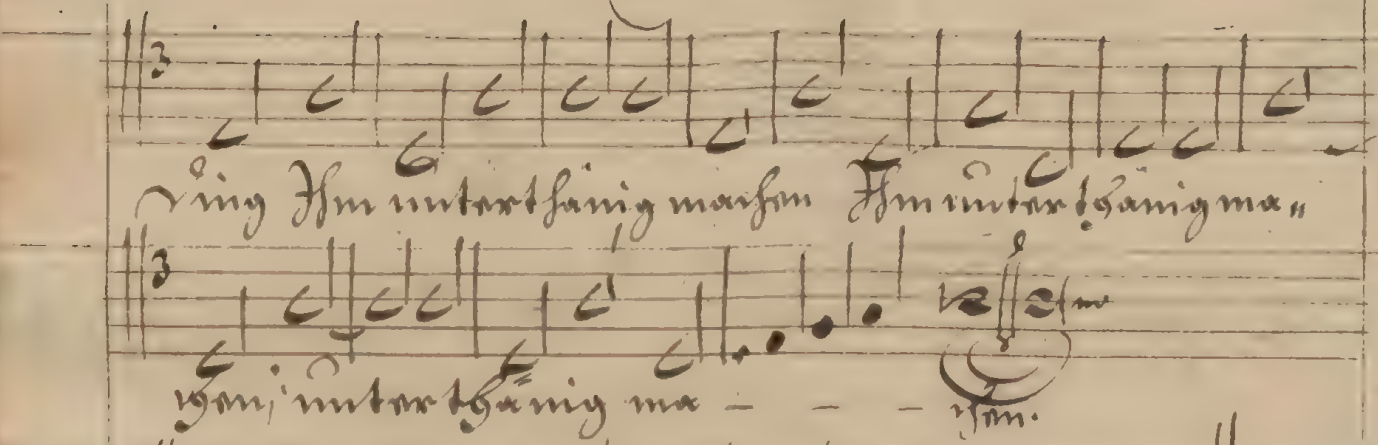 3
Ding Ihm unterthänig machen Ihm unterthänig ma„
3
chen, unterthänig ma – – – chen.